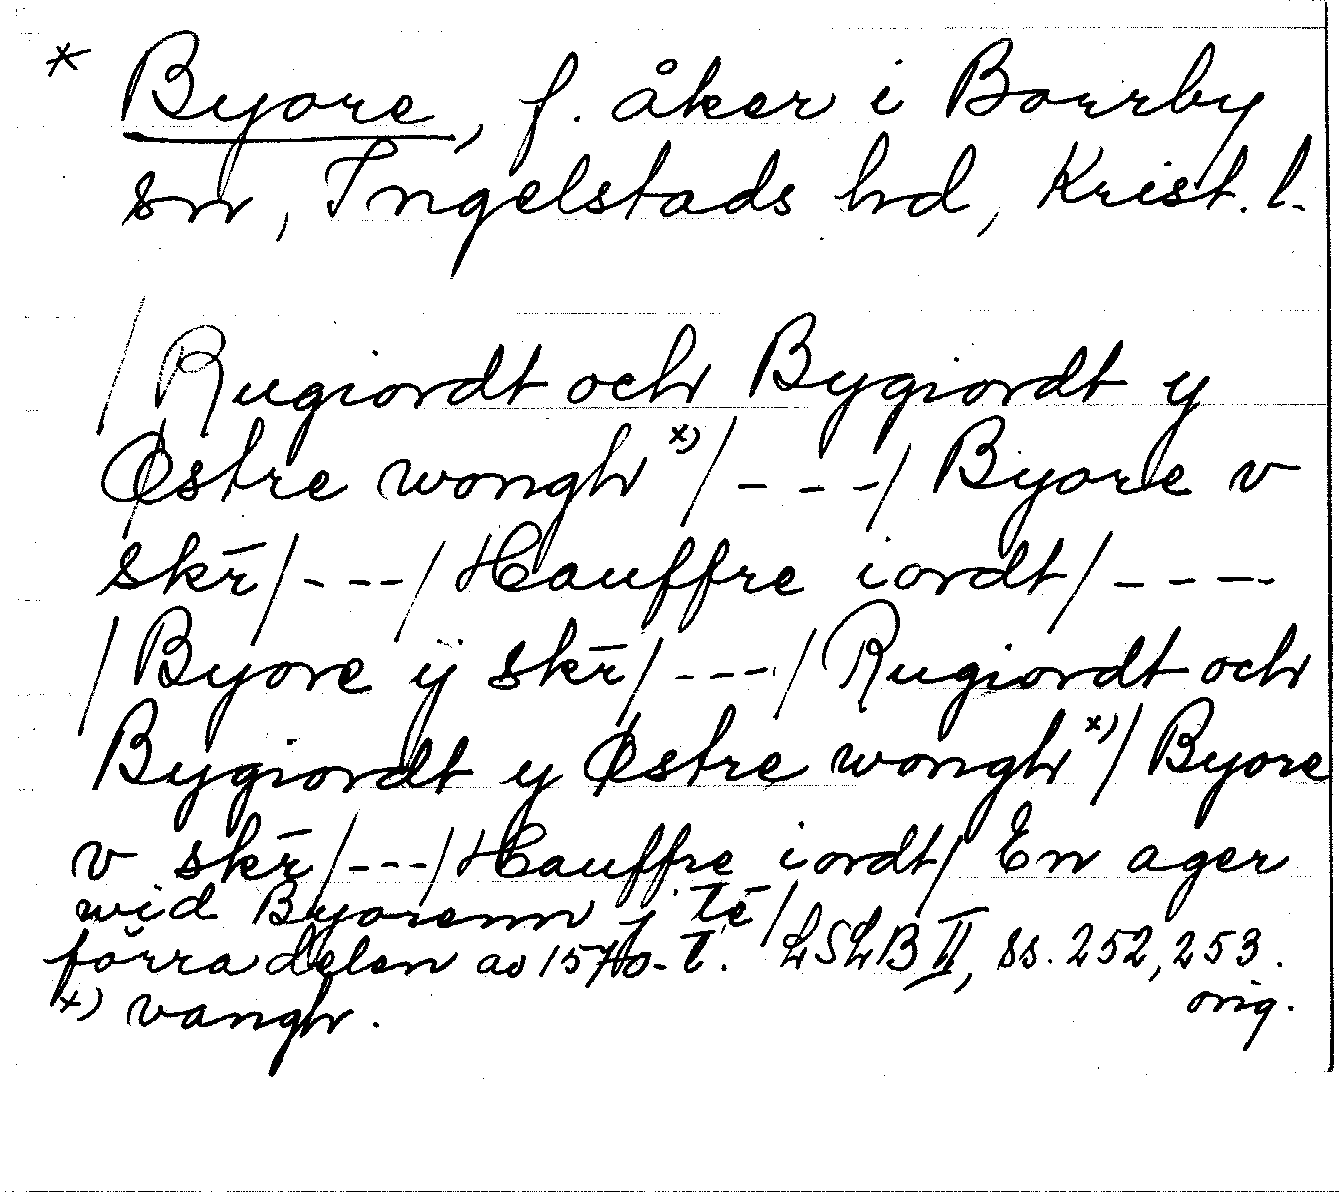 * Byore, f. åker i Borrby
sn, Ingelstads hd, Krist. l.
/Rugiordt och Bygiordt y
Østre wongh x)/ - - - / Byore v
skr̄/ - - - / Hauffre iordt/ - - - -
/Byore ÿ skr̄/ - - - / Rugiordt och
Bygiordt y Østre wongh x)/ Byore
v skr̄/ - - - / Hauffre iordt/ En ager
wid Byorenn y tē/
förra delen av 1570-t. LSLB II, ss. 252, 253.
orig.
x) vangh.